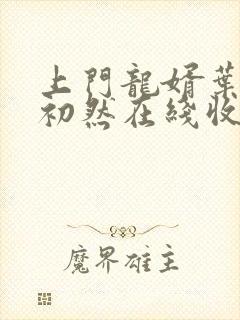 上門龍婿葉
初然在綫收
魔界雄主